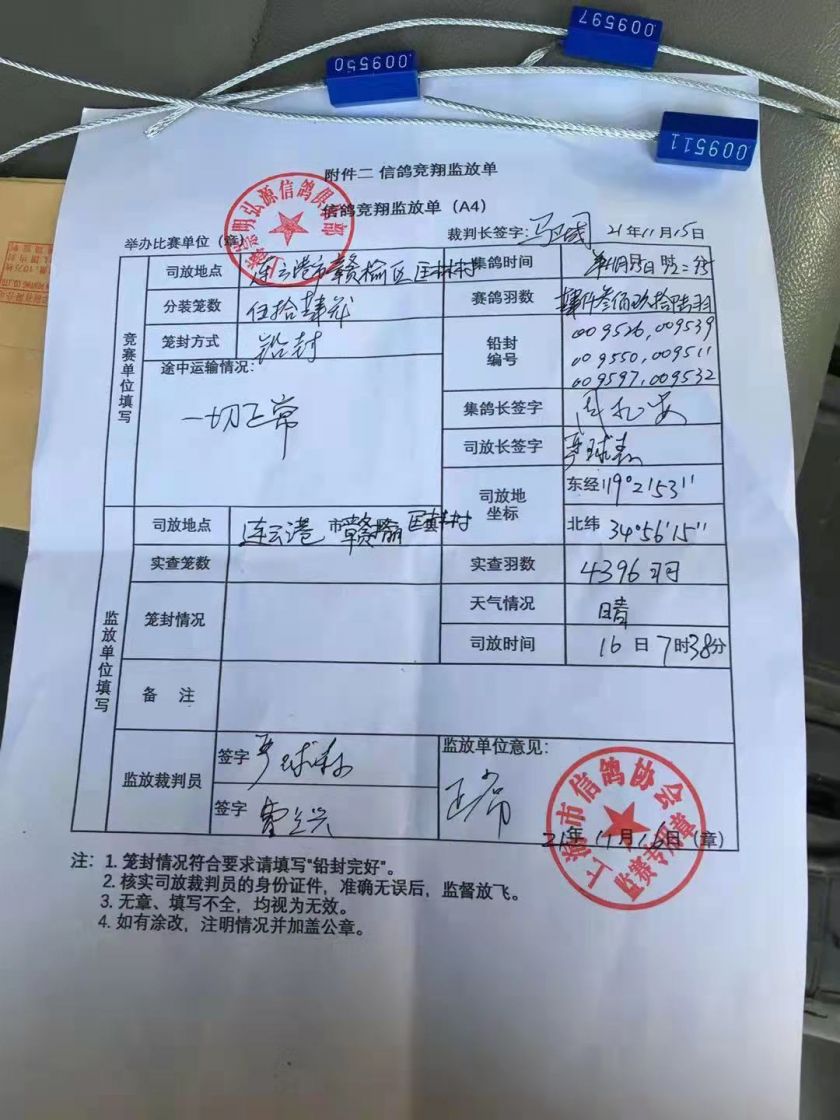 009597
009550
009511
附件二 信鸽竞翔监放单
信鸽竞翔监放单（A4）
举办比赛单位（章）
裁判长签字： 21年11月15日
竞赛单位填写
司放地点 连云港市赣榆区
集鸽时间
分装笼数 伍拾肆
赛鸽羽数 肆仟叁佰玖拾陆羽
笼封方式 铅封
铅封编号
009526，009539
009550，009511
009597，009532
途中运输情况：
一切正常
集鸽长签字
司放长签字
司放地坐标
东经 119°2'53''
北纬 34°56'15''
监放单位填写
司放地点 连云港市赣榆
实查笼数
实查羽数 4396羽
笼封情况
天气情况 晴
司放时间 16日7时38分
备 注
监放裁判员
签字
签字
监放单位意见：
正常
21年11月16日（章）
上海市信鸽协会
监赛专用章
注：1. 笼封情况符合要求请填写"铅封完好"。
2. 核实司放裁判员的身份证件，准确无误后，监督放飞。
3. 无章、填写不全，均视为无效。
4. 如有涂改，注明情况并加盖公章。